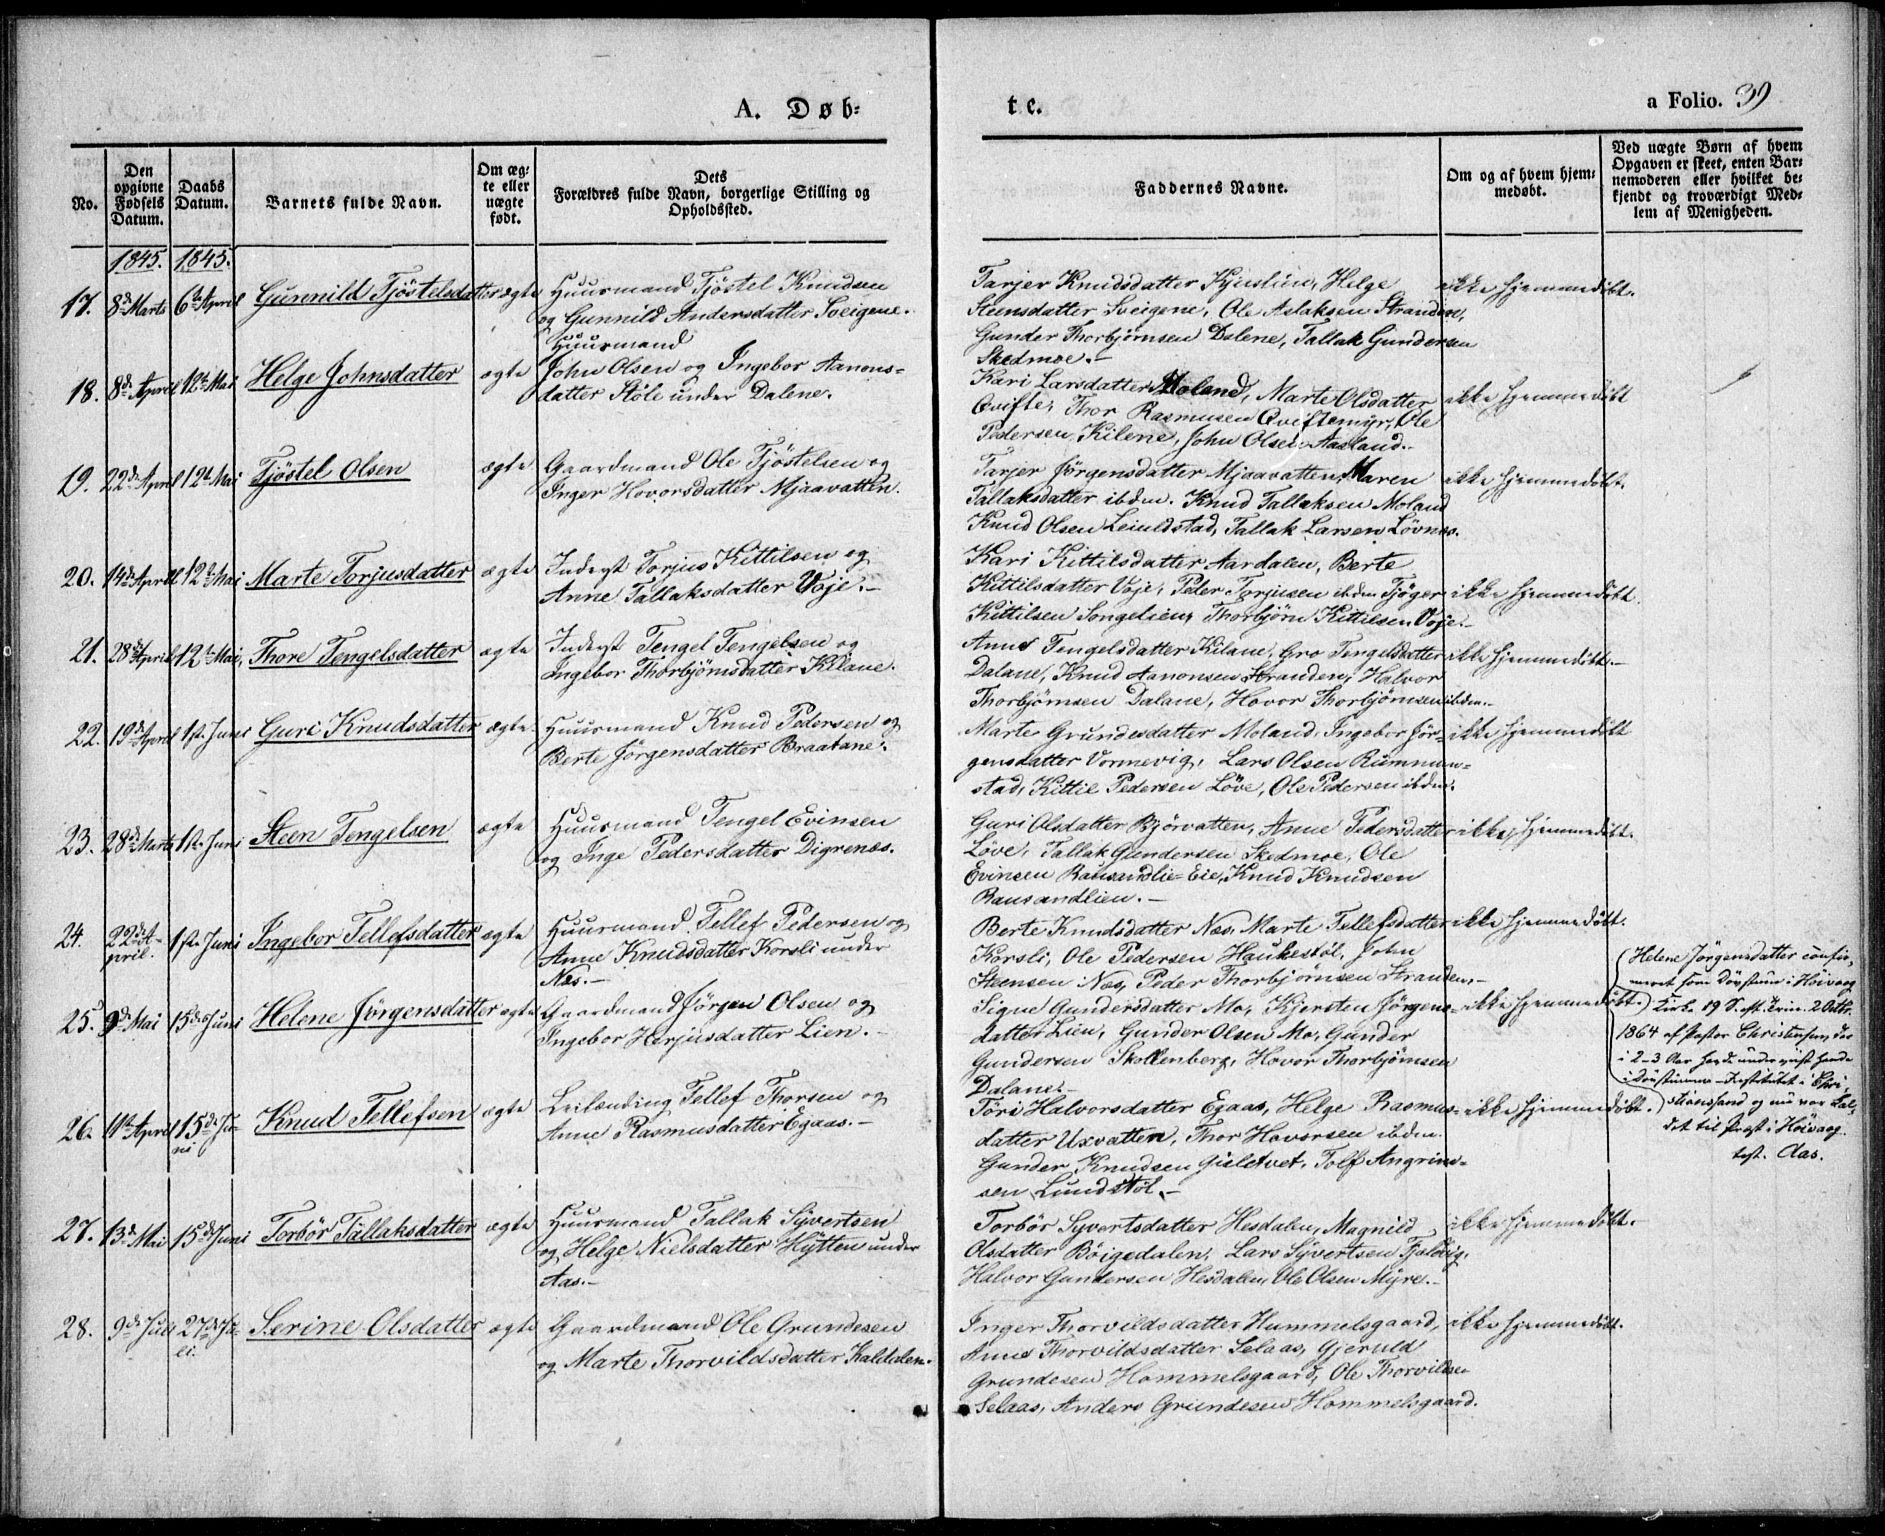 A. Døb=
te.
a Folio. 39
No.
Den opgivne Fødsels Datum.
Daabs Datum.
Barnets fulde Navn.
Om æg= te eller uægte født.
Dets Forældres fulde Navn, borgerlige Stilling og Opholdssted.
Faddernes Navne.
Om og af hvem hjem= medøbt.
Ved uægte Børn af hvem Opgaven er skeet, enten Bar= nemoderen eller hvilket be= kjendt og troværdigt Med= lem af Menigheden.
1845. 1845.
17. 8de Marts 6te April Gunnild Tjöstelsdatter ægte Huusmand Tjöstel Knudsen
og Gunnild Andersdatter Sveigene.
Tarjer Knudsdatter Helge
Steensdatter Sveigene, Ole Aslaksen Stranden,
Gunder Thorbjörnsen Dalene, Tallak Gundersen
Skedmoe.
ikke hjemmedöbt.
18. 8de April 12te Mai Helge Johnsdatter ægte Huusmand
John Olsen og Ingebor Aanons=
datter Stöle under Dalene.
Kari Larsdatter Moland, Marte Olsdatter
Qvifte, Thor Rasmusen Qviftemyr, Ole
Pedersen Kilene, John Olsen Aasland.
ikke hjemmedöbt
19. 22de April 12te Mai Tjöstel Olsen ægte Gaardmand Ole Tjöstelsen og
Inger Hovorsdatter Mjaavatten.
Tarjer Jörgensdatter Mjaavatten, Maren
Tallaksdatter ibdm. Knud Tallaksen Moland
Knud Olsen Leiuldstad, Tallak Larsen Lövnes.
ikke hjemmedöbt.
20. 14de April 12te Mai Marte Torjusdatter ægte Inderst Torjus Kittilsen og
Anne Tallaksdatter Voje.-
Kari Kittilsdatter Aardalen, Berte
Kittilsdatter Voje, Peder Torjusen ibdm Tjöger
Kittilsen Songelien, Thorbjörn Kittilsen Voje.-
ikke hjemmedöbt.
21. 28de April 12te Mai, Thore Tengelsdatter ægte Inderst Tengel Tengelsen og
Ingebor Thorbjörnsdatter Kilane.
Anne Tengelsdatter Kilane, Gro Tengelsdatter
Dalane, Knud Aanonsen Stranden, Halvor
Thorbjörnsen Dalane, Hovor Thorbjörnsen ibdm.-
ikke hjemmedöbt.-
22. 19de April 1ste Juni Guri Knudsdatter ægte Huusmand Knud Pedersen og
Berte Jörgensdatter Braatane.
Marte Grundesdatter Moland, Ingebor Jör=
gensdatter Vormevig, Lars Olsen Rummen=
stad, Kittil Pedersen Löve, Ole Pedersen ibdm.
ikke hjemmedöbt
23. 28de Marts 1ste Juni Steen Tengelsen ægte Huusmand Tengel Evinsen
og Inge Pedersdatter Digrenes.
Guri Olsdatter Björvatten, Anne Pedersdatter
Löve, Tallak Gundersen Skedmoe, Ole
Evinsen Bausandlie=Eie, Knud Knudsen
Bausandlien.-
ikke hjemmedöbt.
24. 22de A=
pril. 1ste Juni Ingebor Tellefsdatter ægte Huusmand Tellef Pedersen og
Anne Knudsdatter Korsli under
Næs.-
Berte Knudsdatter Næs, Marte Tellefsdatter
Korsli, Ole Pedersen Haukestöl, John
Steensen Næs, Peder Thorbjörnsen Stranden.-
ikke hjemmedöbt.
25. 9de Mai 15de Juni Helene Jörgensdatter ægte Gaardmand Jörgen Olsen og
Ingebor Herjusdatter Lien.-
Signe Gundersdatter Mo, Kjersten Jörgens=
datter Lien, Gunder Olsen Mo, Gunder
Gundersen Skollenberg, Hovor Thorbjörnsen
Dalane.-
ikke hjemmedöbt.
Helene Jörgensdatter confir=
meret som Dövstum i Höivaag
Kirke 19 S. eft. Trin. 2 Octbr.
1864 af Pastor Christensen, der
i 2-3 Aar havde underviist hende
i Dövstumme-Institutet i Chri,
stianssand og nu var kal,
det til Præst i Höivaag.
test. Aas.
26. 11te April 15de Ju=
ni Knud Tellefsen ægte Leilænding Tellef Thorsen og
Anne Rasmusdatter Egaas.-
Töri Halvorsdatter Egaas, Helge Rasmus=
datter Uxvatten, Thor Hovorsen ibdm.
Gunder Knudsen Gisletvet, Tolf Angrim=
sen Lundstöl.-
ikke hjemmedöbt.
27. 13de Mai 15de Juni Torbör Tallaksdatter ægte Huusmand Tallak Syvertsen
og Helge Nielsdatter Hytten under
Aas.-
Torbör Syvertsdatter Hesdalen, Magnild
Olsdatter Böigedalen, Lars Syvertsen Tjaldvig,
Halvor Gundersen Hesdalen, Ole Olsen Myre.-
ikke hjemmedöbt.
28. 9de Juli 27de Ju=
li. Serine Olsdatter ægte Gaardmand Ole Grundesen
og Marte Thorvildsdatter Kaldalen.
Inger Thorvildsdatter Hummelsgaard,
Anne Thorvildsdatter Selaas, Gjeruld
Grundesen Hommelsgaard, Ole Thorvildsen
Selaas, Anders Grundesen Hommelsgaard.
ikke hjemmedöbt.